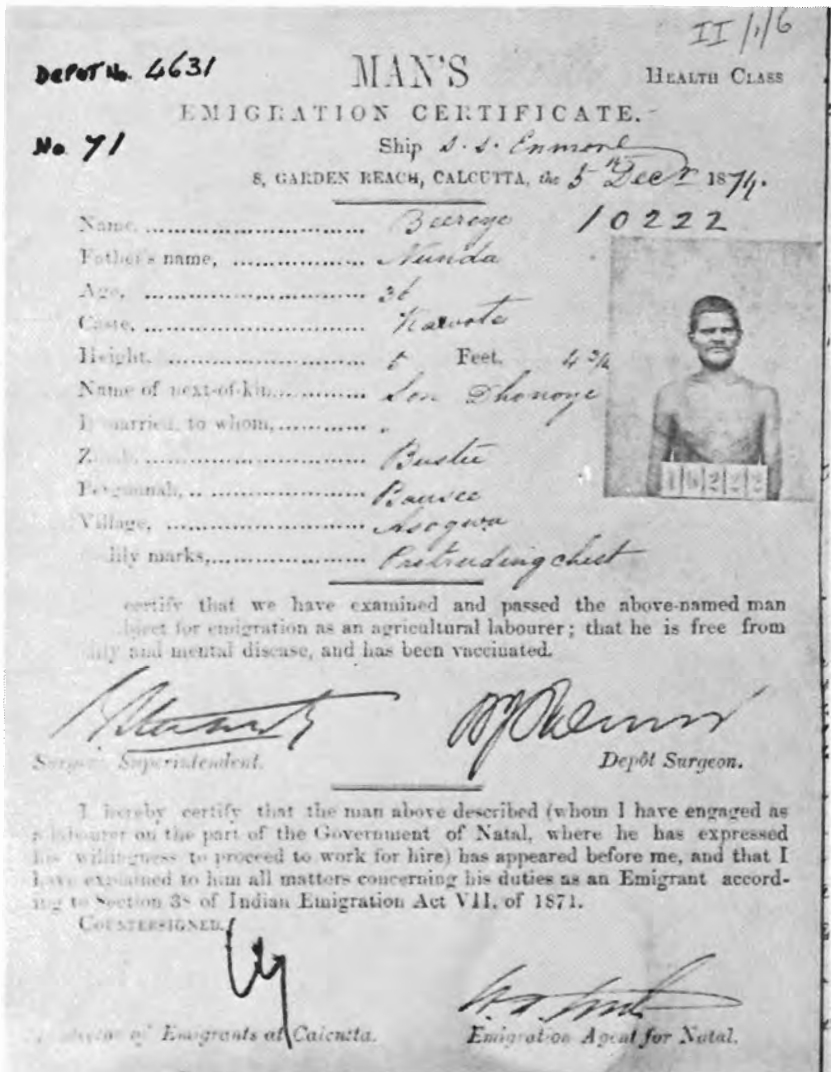 II/1/6
DEPOT No. 4631
MAN'S
HEALTH CLASS
EMIGRATION CERTIFICATE.
No 71
Ship S. S. Enmore
8, GARDEN REACH, CALCUTTA, the 5th Decr 1874.
Name, .............................. Beeroge 10222
Father's name, .................. Nunda
Age, .............................. 36
Caste, ..............................
Height, .............................. 5 Feet. 4 3/4
Name of next-of-kin, ............ Son Dhonoye
If married, to whom, ............ "
Zillah, .............................. Bustee
Pergunnah, .. .................. Bansee
Village, .............................. Asogwa
dily marks, .................. Protruding chest
10222
certify that we have examined and passed the above-named man
bject for emigration as an agricultural labourer; that he is free from
dily and mental disease, and has been vaccinated.
Surgeon Superintendent.
Depôt Surgeon.
I hereby certify that the man above described (whom I have engaged as
a labourer on the part of the Government of Natal, where he has expressed
his willingness to proceed to work for hire) has appeared before me, and that I
have explained to him all matters concerning his duties as an Emigrant accord-
ing to Section 38 of Indian Emigration Act VII. of 1871.
COUNTERSIGNED.
of Emigrants at Calcutta.
Emigration Agent for Natal.